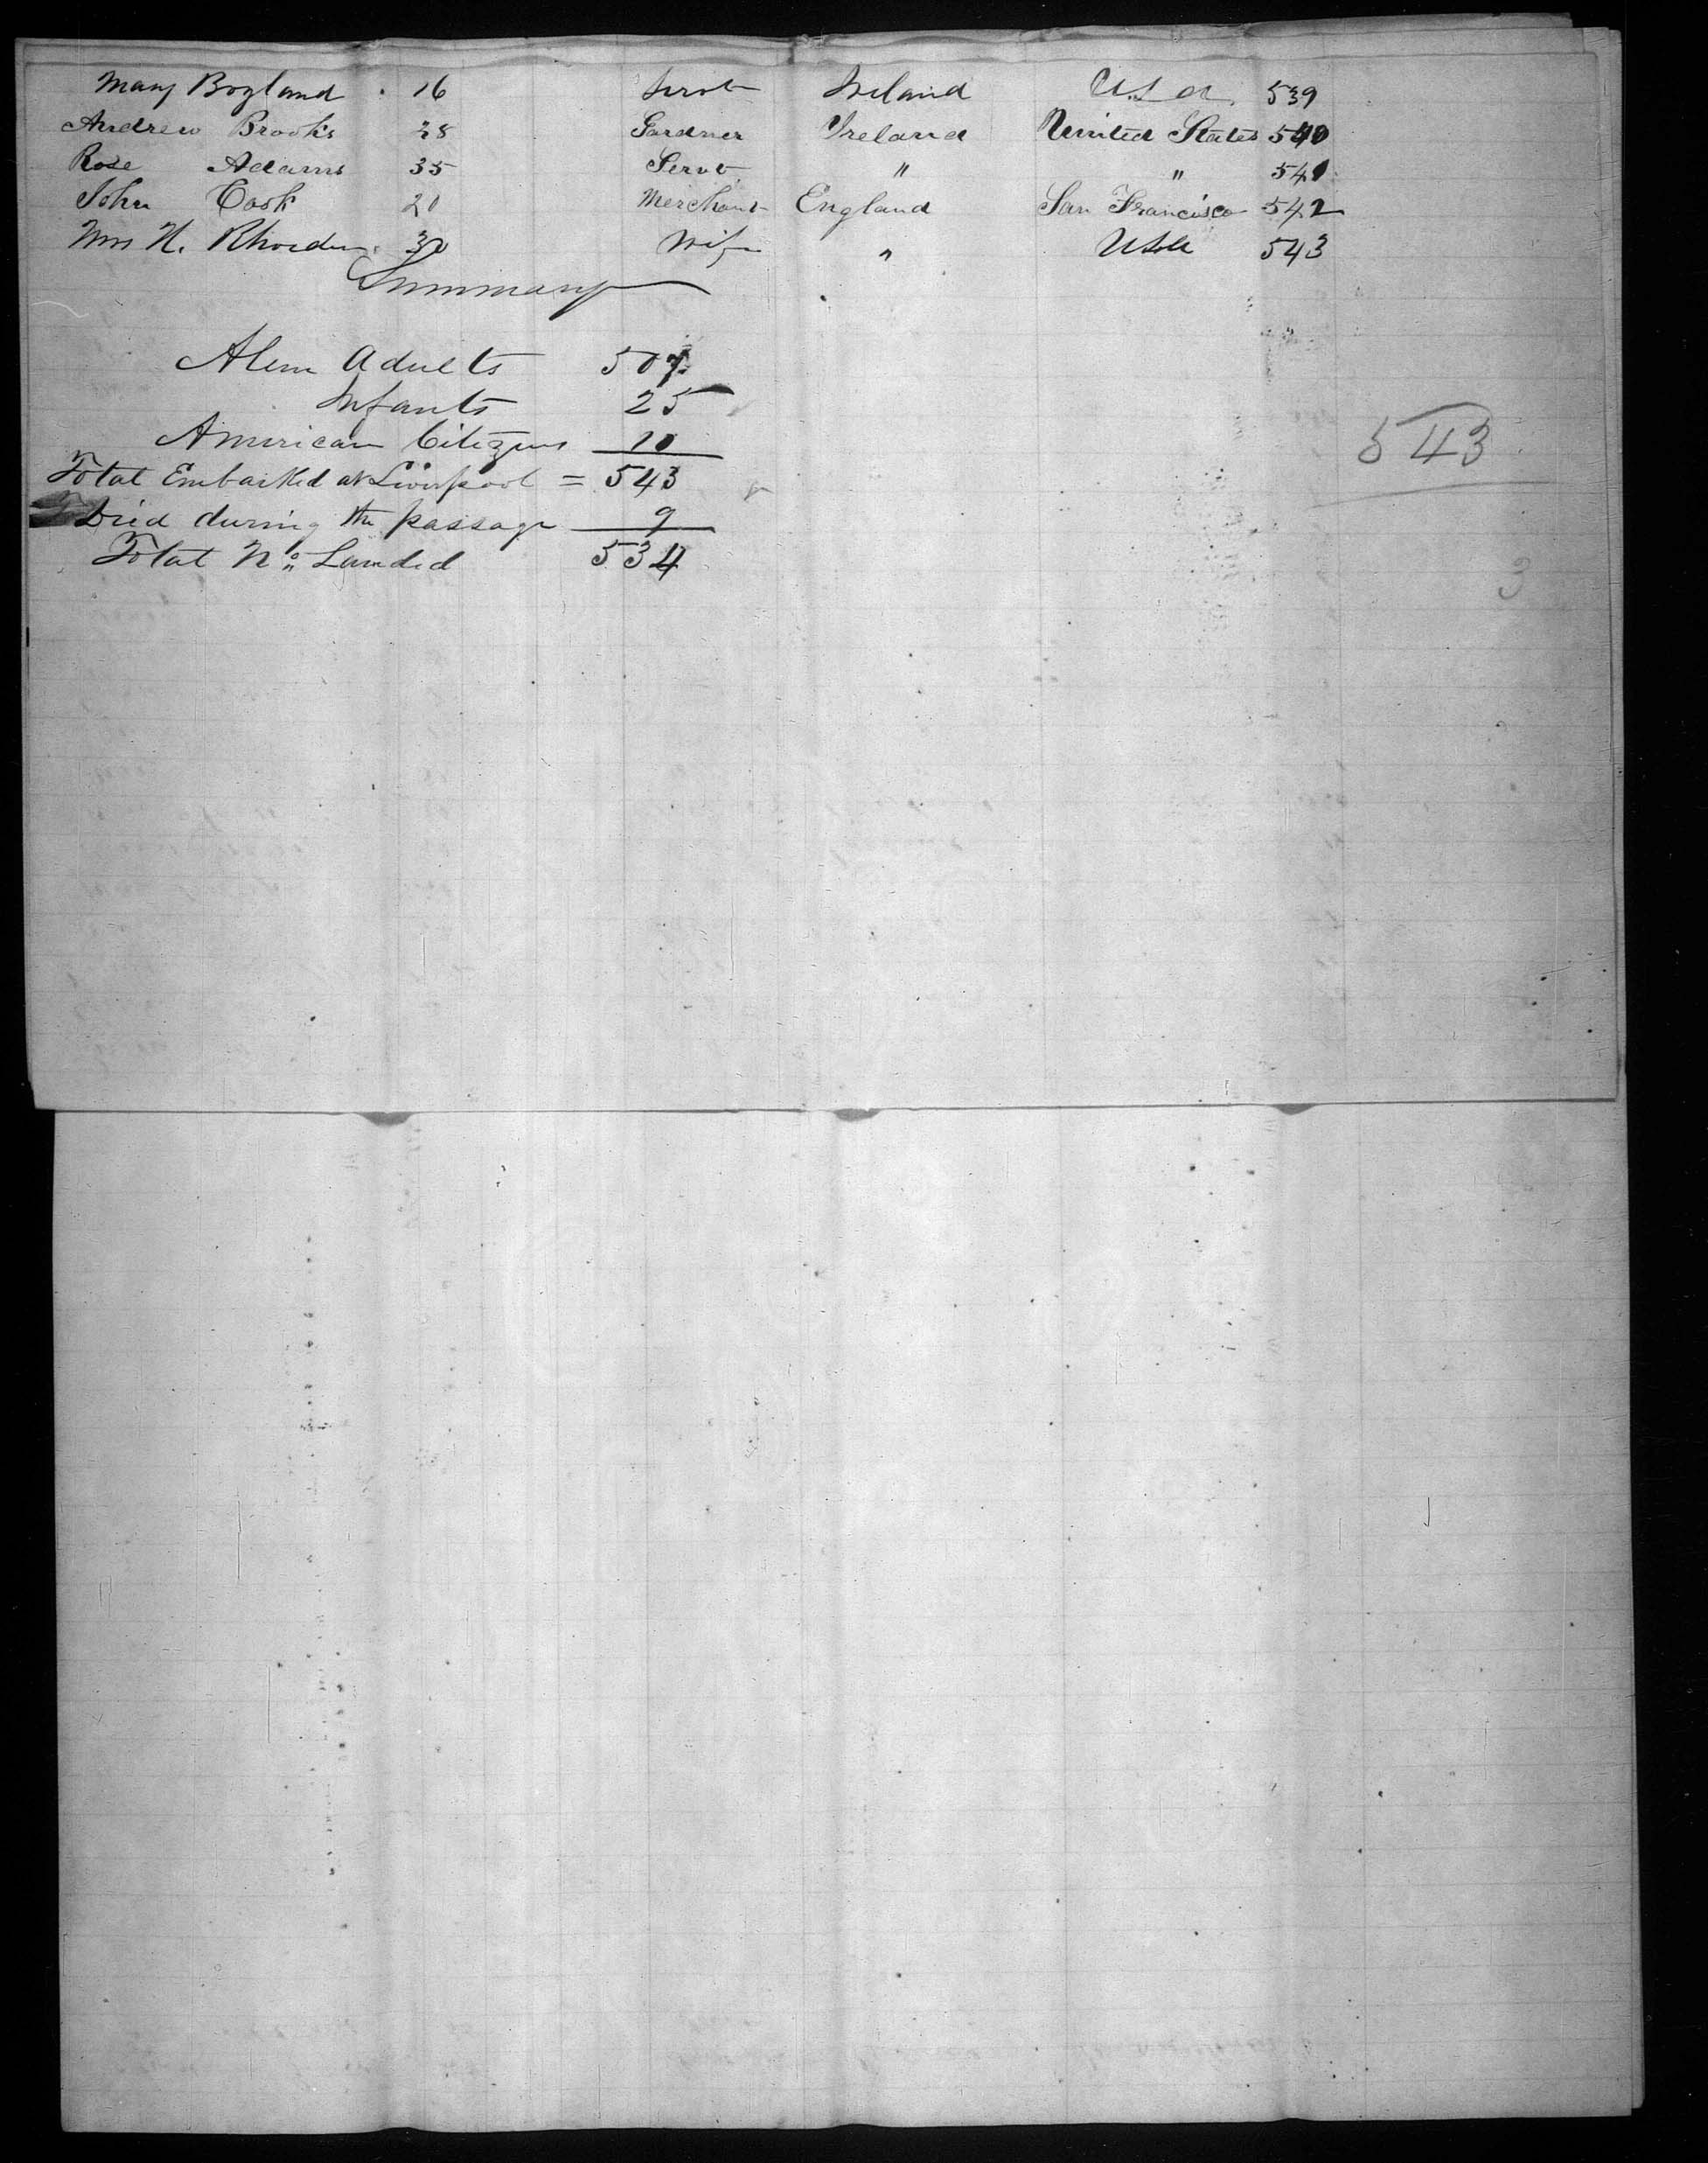 Mary Bogland 16 Servt Ireland U.S.A. 539
Andrew Brooks 28 Gardner Ireland United States 540
Rose Adams 35 Servt " " 541
John Cook 20 Merchant England San Francisco 542
Mrs H. 30 Wife " USA 543
Summary
Alien Adults 507
Infants 25
American Citizens 10
543
Total Embarked at Liverpool = 543
Died during the passage 9
Total No. Landed 534
3